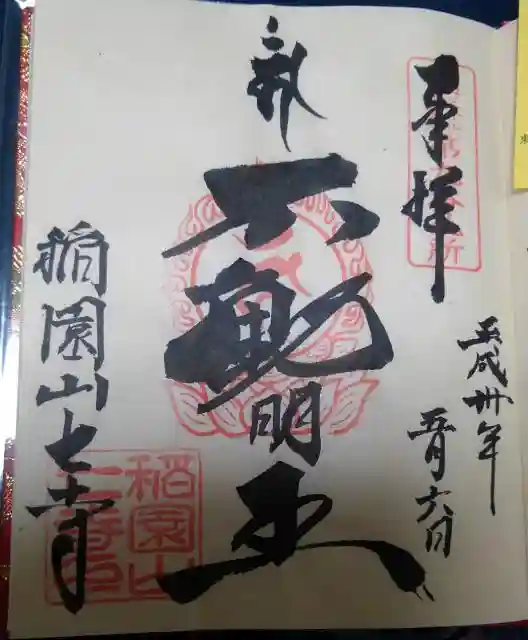 奉拝
平成卅年
五月六日
不動明王
稲園山七寺
稲園山